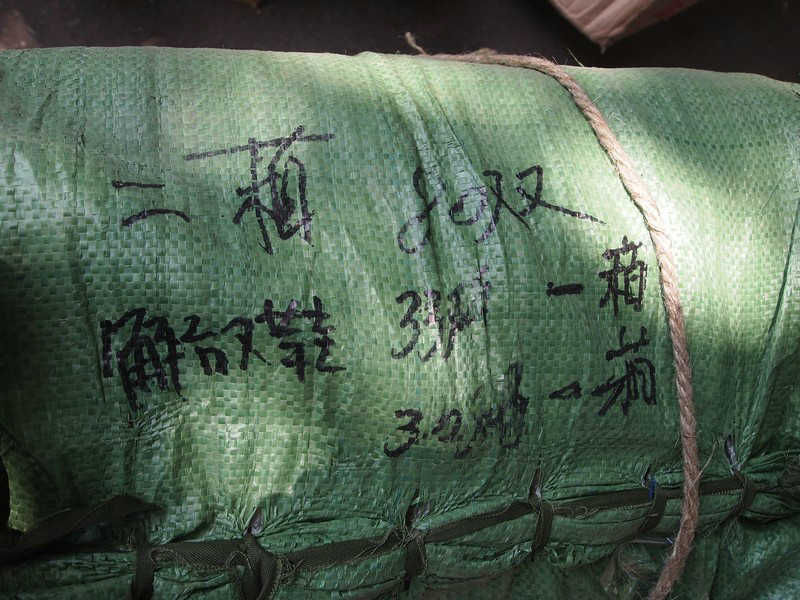 二箱 80双
一箱
解放鞋
一箱